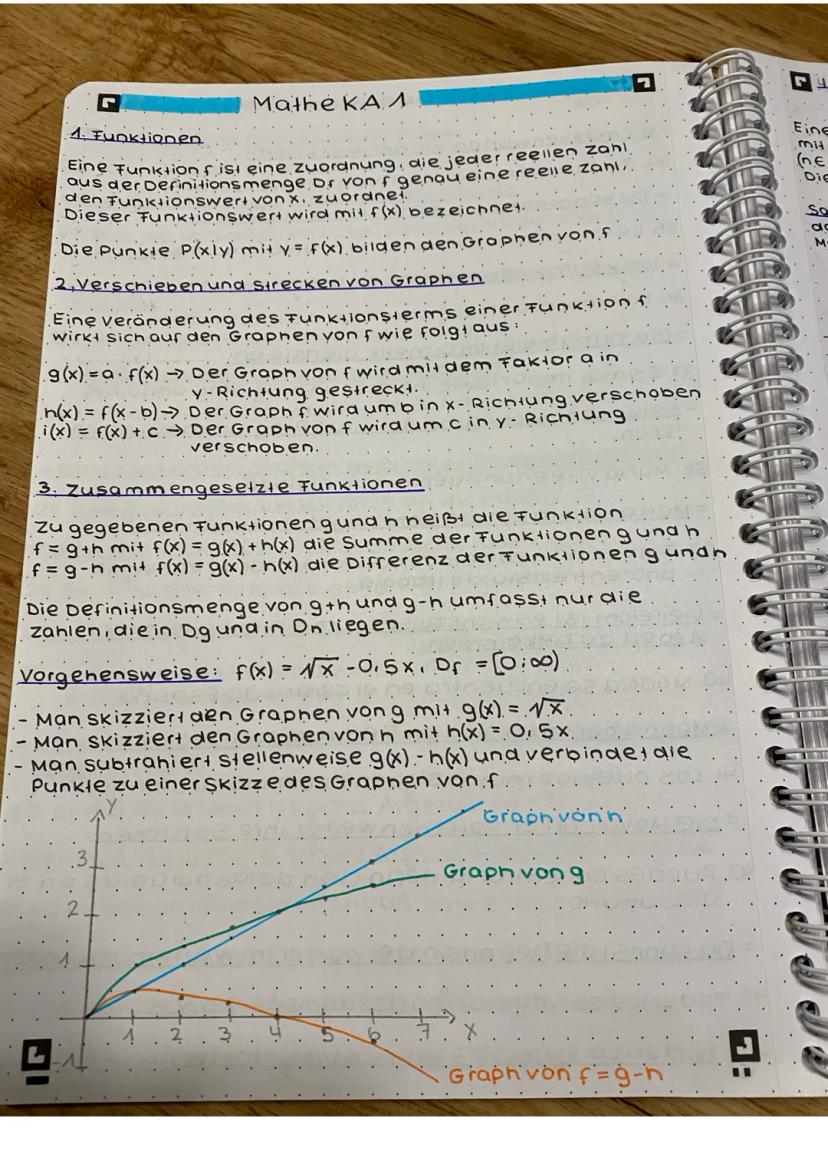 Mathe KA 1
1. Funktionen
Eine Funktion f ist eine Zuordnung, die jeder reellen Zahl
aus der Definitionsmenge Df von f genau eine reelle Zahl,
den Funktionswert von x, zuordnet.
Dieser Funktionswert wird mit f(x) bezeichnet.
Die Punkte P(x|y) mit y = f(x) bilden den Graphen von f.
2. Verschieben und strecken von Graphen
Eine Veränderung des Funktionsterms einer Funktion f
wirkt sich auf den Graphen von f wie folgt aus:
g(x) = a · f(x) → Der Graph von f wird mit dem Faktor a in
y-Richtung gestreckt.
h(x) = f(x-b) → Der Graph f wird um b in x-Richtung verschoben
i(x) = f(x) + c → Der Graph von f wird um c in y-Richtung
verschoben.
3. Zusammengesetzte Funktionen
Zu gegebenen Funktionen g und h heißt die Funktion
f = g+h mit f(x) = g(x) + h(x) die Summe der Funktionen g und h
f = g-h mit f(x) = g(x) - h(x) die Differenz der Funktionen g und h
Die Definitionsmenge von g+h und g-h umfasst nur die
Zahlen, die in Dg und in Dh liegen.
Vorgehensweise: f(x) = √x - 0,5x, Df = [0;∞)
- Man skizziert den Graphen von g mit g(x) = √x.
- Man skizziert den Graphen von h mit h(x) = 0,5x.
- Man subtrahiert stellenweise g(x) - h(x) und verbindet die
Punkte zu einer Skizze des Graphen von f.
y
Graph von h
3
Graph von g
2
1
1 2 3 4 5 6 7 x
-1
Graph von f = g-h
Eine
mit
(ne
Die
So